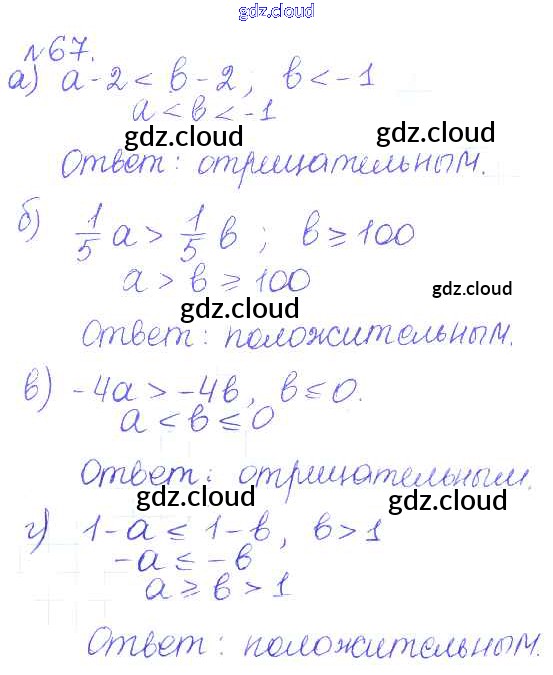 gdz.cloud
№67.
а) a-2 < b-2; b < -1
a < b < -1
gdz.cloud
gdz.cloud
Ответ: отрицательным.
б) 1/5 a > 1/5 b; b ≥ 100
a > b ≥ 100
gdz.cloud
gdz.cloud
Ответ: положительным.
в) -4a > -4b, b ≤ 0.
a < b ≤ 0
Ответ: отрицательным.
gdz.cloud
gdz.cloud
г) 1-a ≤ 1-b, b > 1
-a ≤ -b
a ≥ b > 1
Ответ: положительным.